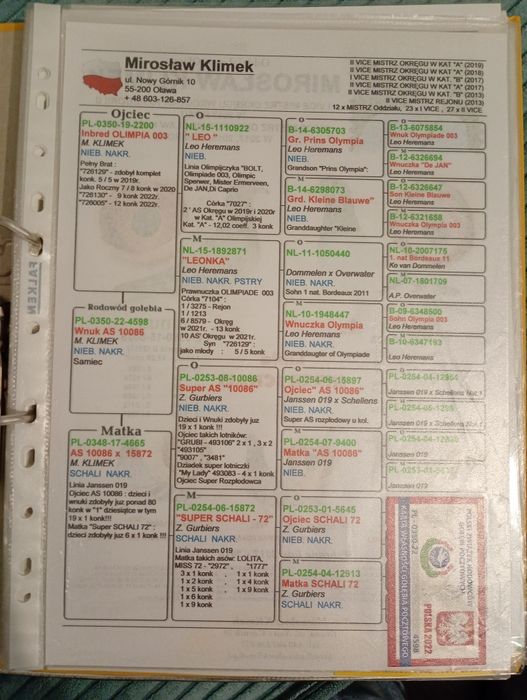 Mirosław Klimek
ul. Nowy Górnik 10
55-200 Oława
+ 48 603-126-857
II VICE MISTRZ OKRĘGU W KAT "A" (2019)
II VICE MISTRZ OKRĘGU W KAT "A" (2018)
I VICE MISTRZ OKRĘGU W KAT. "B" (2017)
II VICE MISTRZ OKRĘGU W KAT "A" (2017)
II VICE MISTRZ OKRĘGU W KAT. "B" (2013)
II VICE MISTRZ REJONU (2013)
12 x MISTRZ Oddziału, 23 x I VICE , 27 x II VICE
Ojciec
PL-0350-19-2200
Inbred OLIMPIA 003
M. KLIMEK
NIEB. NAKR.
Pełny Brat :
"726129" - zdobył komplet
konk. 5 / 5 w 2019r.
Jako Roczny 7 / 8 konk w 2020
"726130" - 9 konk 2022r.
"726005" - 12 konk 2022r.
Rodowód gołębia
PL-0350-22-4598
Wnuk AS 10086
M. KLIMEK
NIEB. NAKR.
Samiec
Matka
PL-0348-17-4665
AS 10086 x 15872
M. KLIMEK
SCHALI NAKR.
Linia Janssen 019
Ojciec AS 10086 : dzieci i
wnuki zdobyły już ponad 80
konk w "1" dziesiątce w tym
19 x 1 konk!!!
Matka "Super SCHALI 72" :
dzieci zdobyły już 6 x 1 konk !!!
O
NL-15-1110922
" LEO "
Leo Heremans
NIEB.
Linia Olimpijczyka "BOLT,
Olimpiade 003, Olimpic
Sperwer, Mister Ermerveen,
De JAN,Di Caprio
Córka "7027" :
2 ' AS Okręgu w 2019r i 2020r
w Kat. "A" Olimpijskiej
Kat. "A" - 12,02 coeff. 3 konk
M
NL-15-1892871
"LEONKA"
Leo Heremans
NIEB. NAKR. PSTRY
Prawnuczka OLIMPIADE 003
Córka "7104" :
1 / 3275 - Rejon
1 / 1213
6 / 8579 - Okręg
w 2021r. - 13 konk
10 AS Okręgu w 2021r.
Syn "726129":
jako młody : 5 / 5 konk
O
PL-0253-08-10086
Super AS "10086"
Z. Gurbiers
NIEB. NAKR.
Dzieci i Wnuki zdobyły już
19 x 1 konk !!!
Ojciec takich lotników:
"GRUBI - 493106" 2 x 1 , 3 x 2
"493105"
"9007" , "3481"
Dziadek super lotniczki
"My Lady" 493083 - 4 x 1 konk
Ojciec Super Rozpłodowca
M
PL-0254-06-15872
"SUPER SCHALI - 72"
Z. Gurbiers
SCHALI NAKR.
Linia Janssen 019
Matka takich asów: LOLITA,
MISS 72 - "2972" , "1777"
3 x 1 konk , 1 x 1 konk
1 x 2 konk , 1 x 4 konk
1 x 5 konk , 1 x 9 konk
1 x 6 konk
1 x 9 konk
O
B-14-6305703
Gr. Prins Olympia
Leo Heremans
NIEB.
Grandson "Prins Olympia":
M
B-14-6298073
Grd. Kleine Blauwe"
Leo Heremans
NIEB.
Granddaughter "Kleine
O
NL-11-1050440
Dommelen x Overwater
NIEB. NAKR.
Sohn 1 nat. Bordeaux 2011
M
NL-10-1948447
Wnuczka Olympia
Leo Heremans
NIEB. NAKR.
Granddaughter of Olympiade
O
PL-0254-06-15897
Ojciec" AS 10086"
Janssen 019 x Schellens
NIEB. NAKR.
Super AS rozpłodowy u kol.
M
PL-0254-07-9400
Matka "AS 10086"
Janssen 019
NIEB.
O
PL-0253-01-5645
Ojciec SCHALI 72
Z. Gurbiers
NIEB. NAKR.
M
PL-0254-04-12513
Matka SCHALI 72
Z. Gurbiers
SCHALI NAKR.
B-13-6075854
Wnuk Olympiade 003
Leo Heremans
NIEB.
B-12-6326694
Wnuczka "De JAN"
Leo Heremans
NIEB.
B-12-6326647
Son Kleine Blauwe
Leo Heremans
NIEB. NAKR.
B-12-6321658
Wnuczka Olympia 003
Leo Heremans
NIEB. NAKR.
NL-10-2007175
1. nat Bordeaux 11
Ko van Dommelen
NL-07-1801709
A.P. Overwater
B-09-6348500
Sohn Olympia 003
Leo Heremans
B-10-6347193
Leo Heremans
Janssen 019 x Schellens
Janssen 019
Janssen 019
POLSKI ZWIĄZEK HODOWCÓW
GOŁĘBI POCZTOWYCH
PL-0350-22
KARTA WŁASNOŚCI GOŁĘBIA POCZTOWEGO
POLSKA 2022
4598
FALKEN